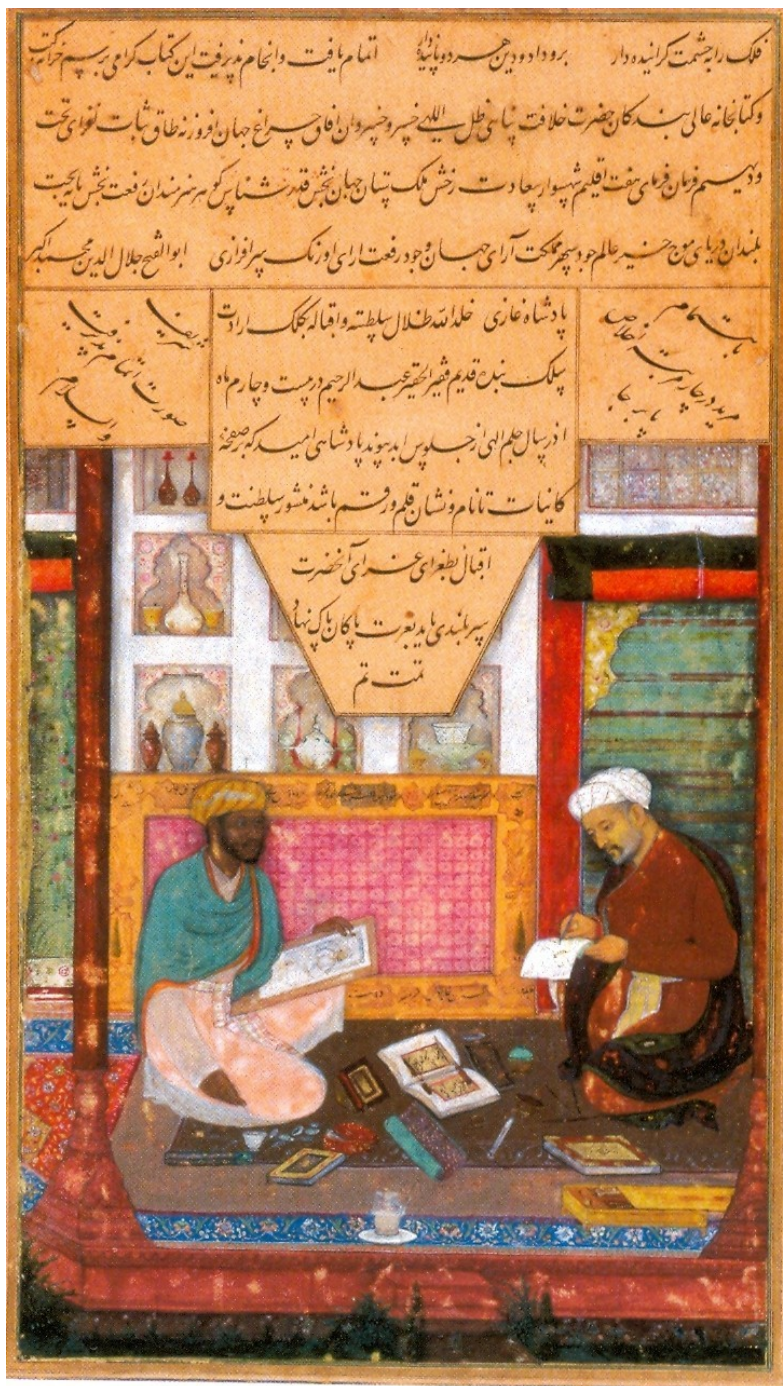 فلک را به حشمت کراینده دار برو داد و دین هر دو پاینده دار اتمام یافت و انجام پذیرفت این کتاب کرامی برسم خزانه کتب
و کتابخانه عالی بندکان حضرت خلافت پناهی ظل اللهی خسرو خسروان افاق چراغ جهان افروز نه طاق ثبات تخت
و دیهیم فرمان فرمای هفت اقلیم شهسوار سعادت رخش ملک ستان جهان بخش قدر شناس کوهر هنرمندان رفعت بخش
بلندان دریای موج خیز عالم جود سپهر مملکت آرای جهان وجود رفعت ارای اورنک سرافرازی ابوالفتح جلال الدین محمد اکبر
پادشاه غازی خلد الله ظلال سلطنته و اقباله بکلک ارادت
سلک بنده قدیم فقیر الحقیر عبد الرحیم در بیست و چارم ماه
اذر سال چلم الهی از جلوس ابد پیوند پادشاهی امید که بر صفحه
کاینات تا نام و نشان قلم و رقم باشد منشور سلطنت و
اقبال بطغرای غرای آنحضرت
سربلندی یابد بعزت پاکان پاک نهاد
تمت تم
باهتمام
مرید در چار مرتبه اخلاص
پا بر جا
شریف
صورت اتمام پذیرفت
والسلام